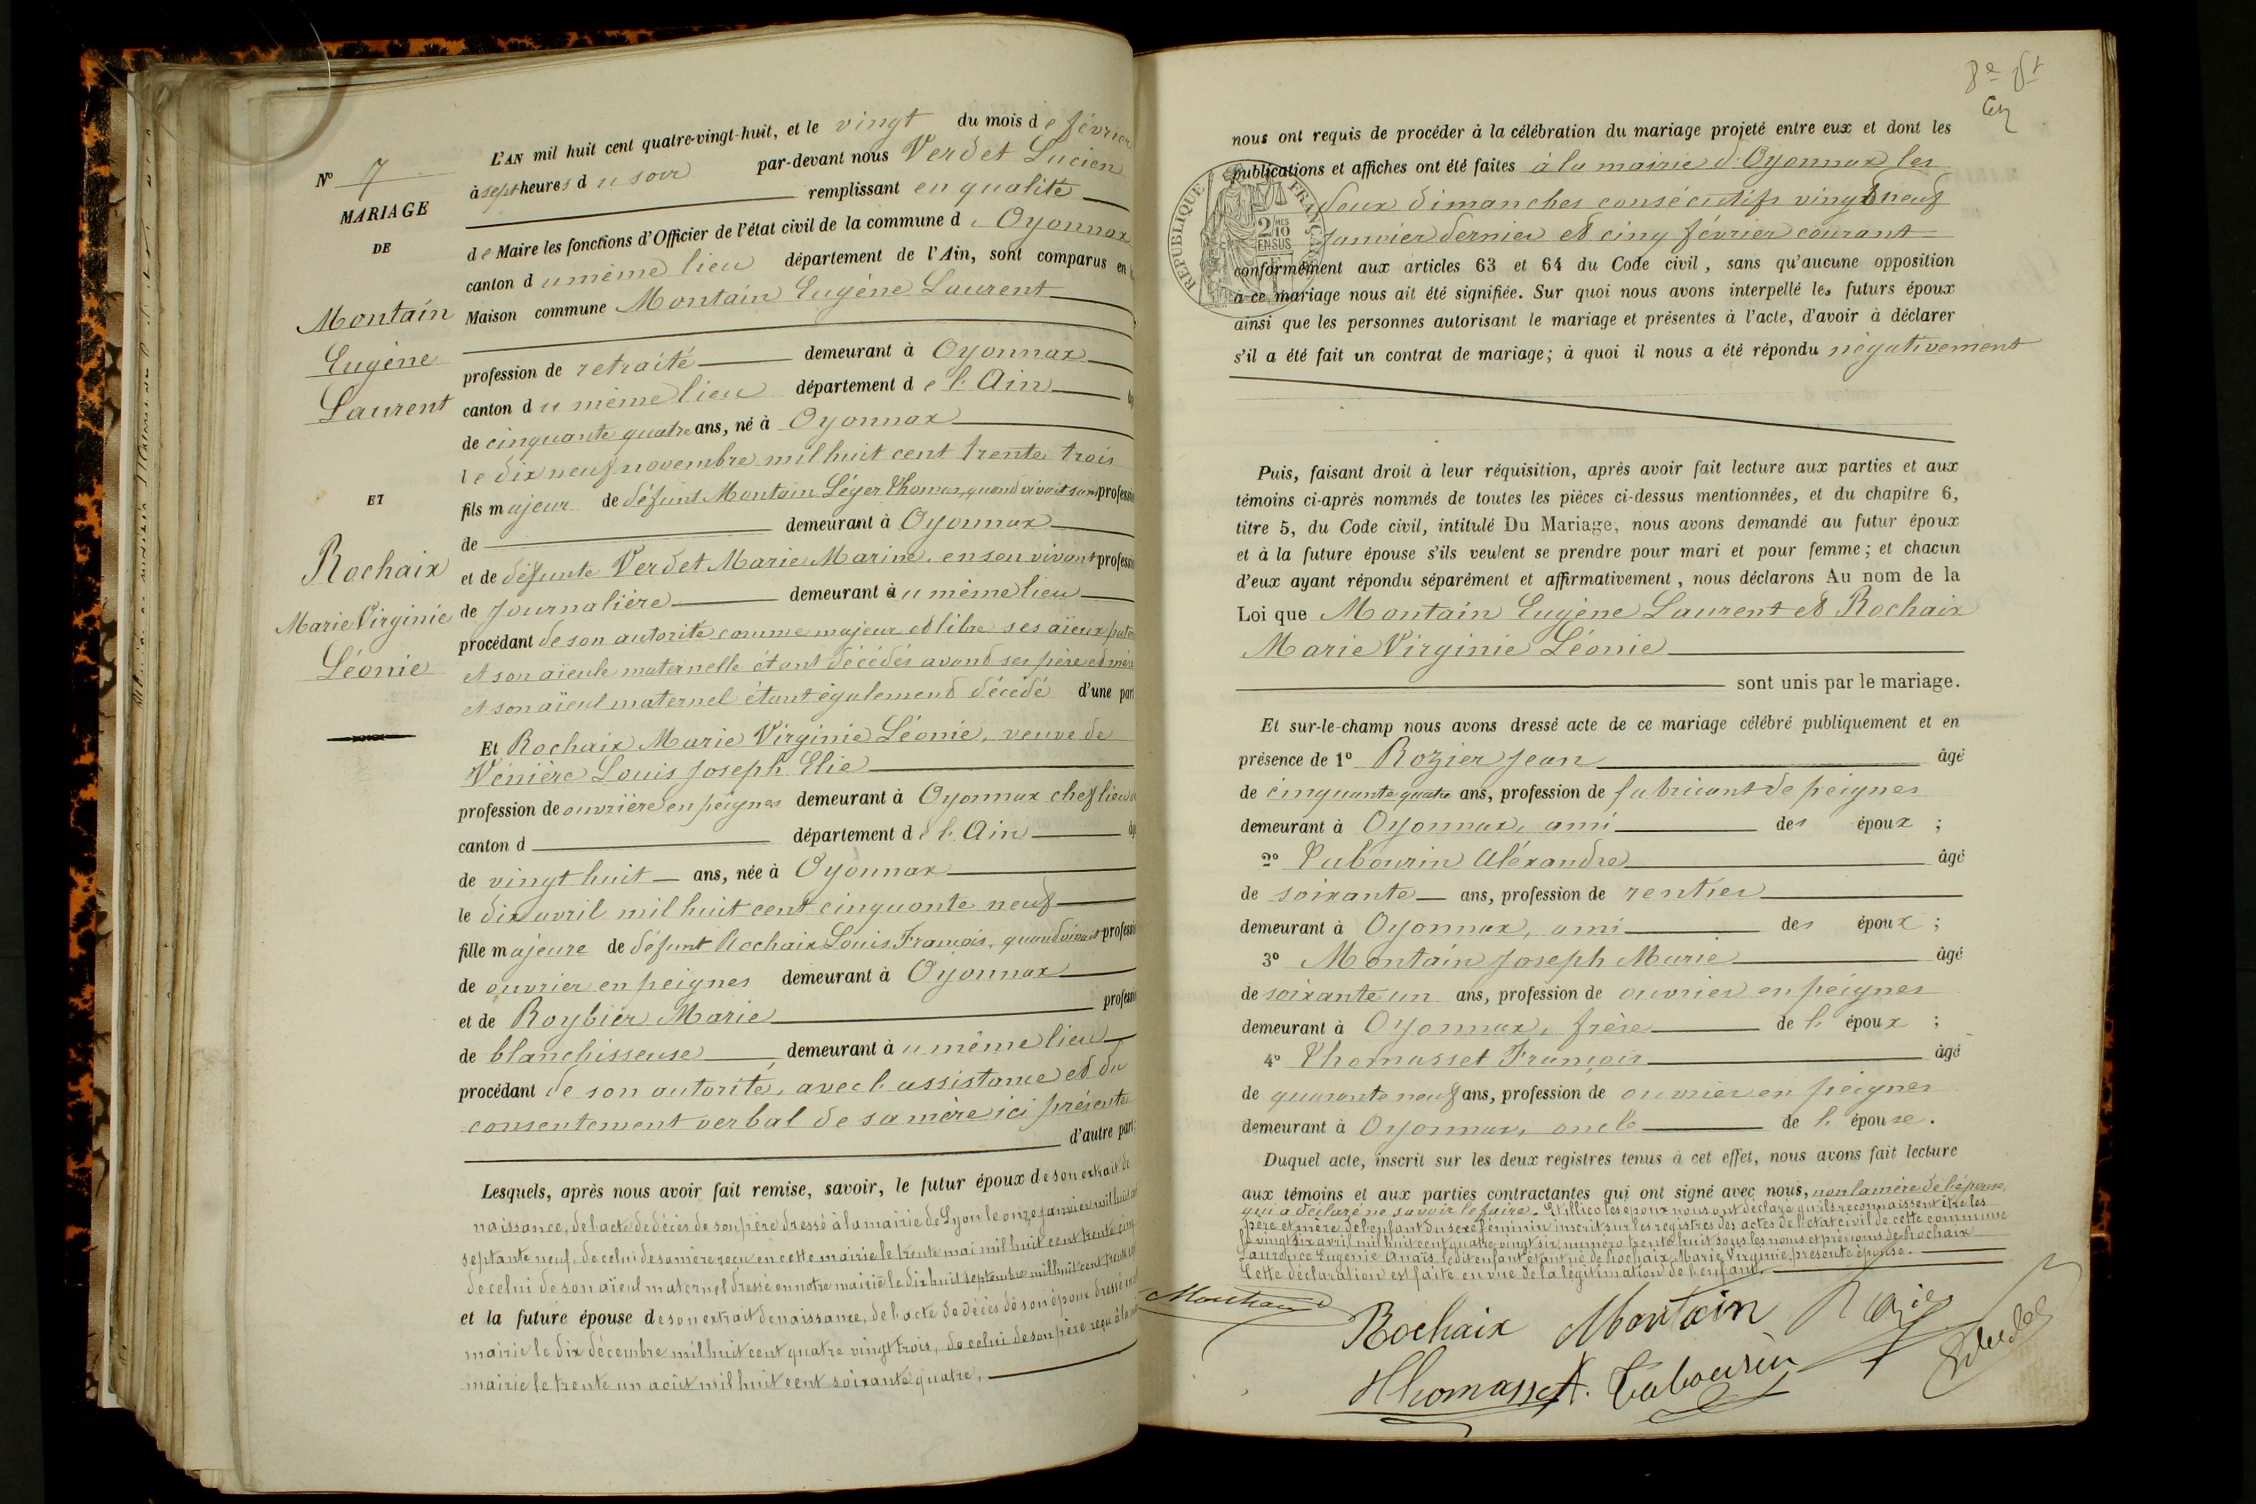 N° 7
MARIAGE
DE
Montain
Eugène
Laurent
ET
Rochaix
Marie Virginie
Léonie
L'AN mil huit cent quatre-vingt-huit, et le vingt du mois de février
à sept heures du soir par-devant nous Verdet Lucien
remplissant en qualité
de Maire les fonctions d'Officier de l'état civil de la commune d Oyonnax
canton du même lieu département de l'Ain, sont comparus en
Maison commune Montain Eugène Laurent
profession de retraité demeurant à Oyonnax
canton du même lieu département de l'Ain
de cinquante quatre ans, né à Oyonnax
le dix neuf novembre mil huit cent trente trois
fils majeur de défunt Montain Léger Thomas, quand vivait sans profession
de demeurant à Oyonnax
et de défunte Verdet Marie Marine, en son vivant profession
de journalière demeurant au même lieu
procédant de son autorité comme majeur et libre ses aïeux
et son aïeule maternelle étant décédés avant ses père et mère
et son aïeul maternel étant également décédé d'une part
Et Rochaix Marie Virginie Léonie, veuve de
Vénière Louis Joseph Elie
profession de ouvrière en peignes demeurant à Oyonnax chef lieu
canton d département de l'Ain
de vingt huit ans, née à Oyonnax
le dix avril mil huit cent cinquante neuf
fille majeure de défunt Rochaix Louis François, quand vivait profession
de ouvrier en peignes demeurant à Oyonnax
et de Roybier Marie profession
de blanchisseuse demeurant au même lieu
procédant de son autorité, avec l'assistance et du
consentement verbal de sa mère ici présente
d'autre part;
Lesquels, après nous avoir fait remise, savoir, le futur époux de son extrait de
naissance, de l'acte de décès de son père dressé à la mairie de Lyon le onze janvier mil huit cent
septante neuf, de celui de sa mère reçu en cette mairie le trente mai mil huit cent trente cinq
de celui de son aïeul maternel dressé en notre mairie le dix huit septembre mil huit cent trente
et la future épouse de son extrait de naissance, de l'acte de décès de son époux dressé en
mairie le dix décembre mil huit cent quatre vingt trois, de celui de son père reçu à la
mairie le trente un août mil huit cent soixante quatre,
nous ont requis de procéder à la célébration du mariage projeté entre eux et dont les
publications et affiches ont été faites à la mairie d'Oyonnax les
deux dimanches consécutifs vingt neuf
janvier dernier et cinq février courant
RÉPUBLIQUE FRANÇAISE
2/10 MES
EN SUS
conformément aux articles 63 et 64 du Code civil, sans qu'aucune opposition
à ce mariage nous ait été signifiée. Sur quoi nous avons interpellé les futurs époux
ainsi que les personnes autorisant le mariage et présentes à l'acte, d'avoir à déclarer
s'il a été fait un contrat de mariage; à quoi il nous a été répondu négativement
Puis, faisant droit à leur réquisition, après avoir fait lecture aux parties et aux
témoins ci-après nommés de toutes les pièces ci-dessus mentionnées, et du chapitre 6,
titre 5, du Code civil, intitulé Du Mariage, nous avons demandé au futur époux
et à la future épouse s'ils veulent se prendre pour mari et pour femme; et chacun
d'eux ayant répondu séparément et affirmativement, nous déclarons Au nom de la
Loi que Montain Eugène Laurent et Rochaix
Marie Virginie Léonie
sont unis par le mariage.
Et sur-le-champ nous avons dressé acte de ce mariage célébré publiquement et en
présence de 1° Rozier Jean âgé
de cinquante quatre ans, profession de fabricant de peignes
demeurant à Oyonnax, ami des époux;
2° Tabourin Aléxandre âgé
de soixante ans, profession de rentier
demeurant à Oyonnax, ami des époux;
3° Montain Joseph Marie âgé
de soixante un ans, profession de ouvrier en peignes
demeurant à Oyonnax, frère de l'époux;
4° Thomasset François âgé
de quarante neuf ans, profession de ouvrier en peignes
demeurant à Oyonnax, oncle de l'épouse.
Duquel acte, inscrit sur les deux registres tenus à cet effet, nous avons fait lecture
aux témoins et aux parties contractantes qui ont signé avec nous, non la mère de l'épouse,
qui a déclaré ne savoir le faire. Et illico les époux nous ont déclaré qu'ils reconnaissent être les
père et mère de l'enfant du sexe féminin inscrit sur les registres des actes de l'état civil de cette commune
le vingt six avril mil huit cent quatre vingt six, numéro trente huit sous les noms et prénoms de Rochaix
Laurence Eugénie Anaïs, ledit enfant étant né de Rochaix Marie Virginie présente épouse.
Cette déclaration est faite en vue de la légitimation de l'enfant.
Rochaix Montain Rozier
Thomasset. Tabourin Verdet